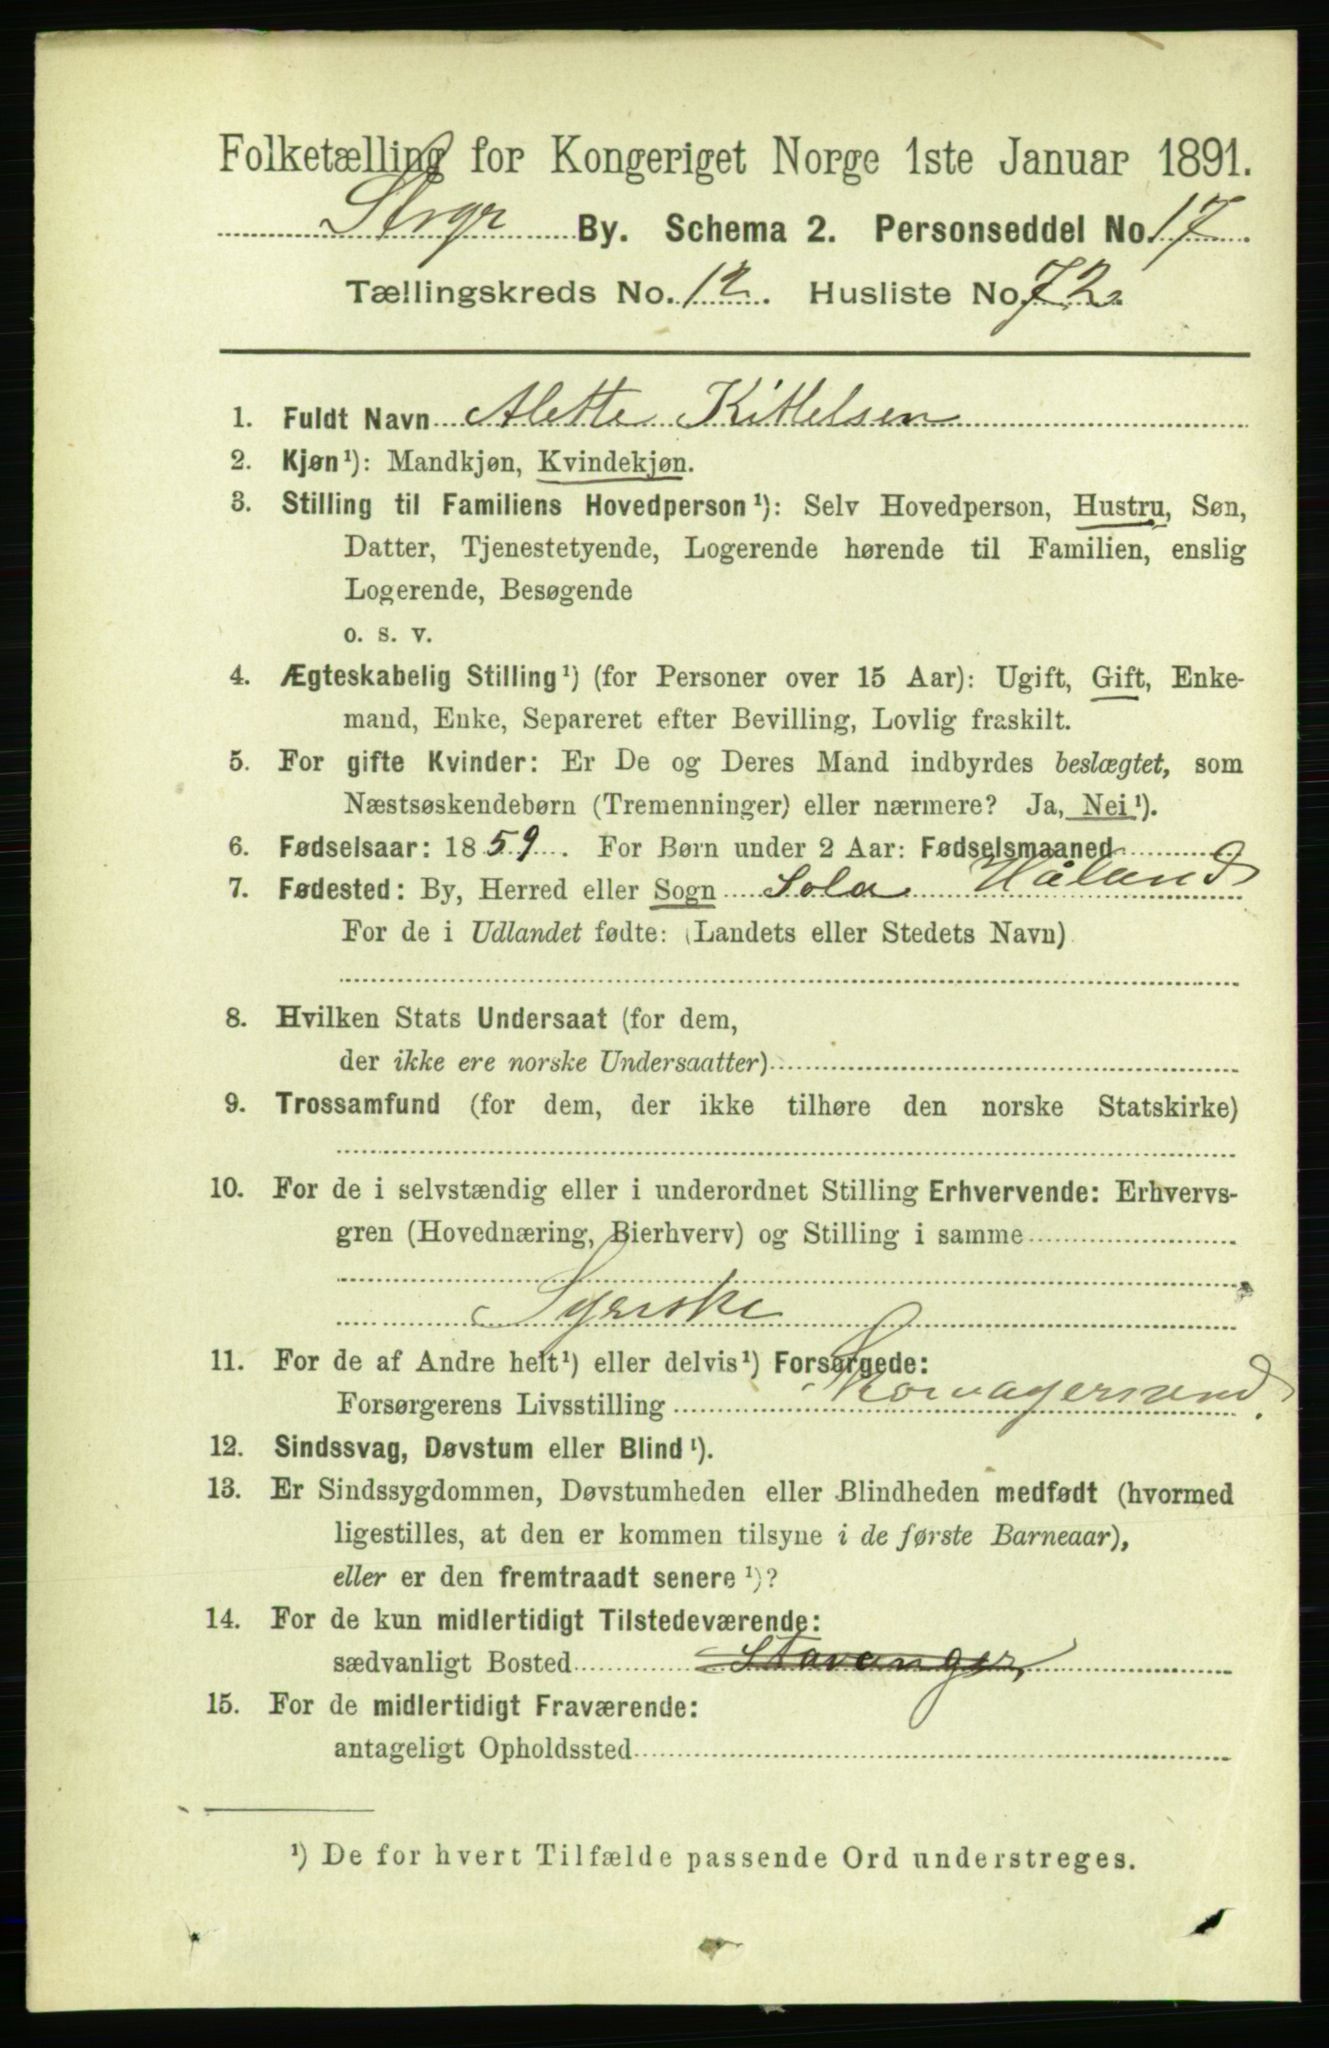 Folketælling for Kongeriget Norge 1ste Januar 1891.
Stvgr By. Schema 2. Personseddel No. 17.
Tællingskreds No. 12. Husliste No. 72.
1. Fuldt Navn Alette Kittelsen
2. Kjøn¹): Mandkjøn, Kvindekjøn.
3. Stilling til Familiens Hovedperson¹): Selv Hovedperson, Hustru, Søn,
Datter, Tjenestetyende, Logerende hørende til Familien, enslig
Logerende, Besøgende
o. s. v.
4. Ægteskabelig Stilling¹) (for Personer over 15 Aar): Ugift, Gift, Enke-
mand, Enke, Separeret efter Bevilling, Lovlig fraskilt.
5. For gifte Kvinder: Er De og Deres Mand indbyrdes beslægtet, som
Næstsøskendebørn (Tremenninger) eller nærmere? Ja, Nei¹).
6. Fødselsaar: 1859. For Børn under 2 Aar: Fødselsmaaned
7. Fødested: By, Herred eller Sogn Sola Håland
For de i Udlandet fødte: (Landets eller Stedets Navn)
8. Hvilken Stats Undersaat (for dem,
der ikke ere norske Undersaatter)
9. Trossamfund (for dem, der ikke tilhøre den norske Statskirke)
10. For de i selvstændig eller i underordnet Stilling Erhvervende: Erhvervs-
gren (Hovednæring, Bierhverv) og Stilling i samme
Syerske
11. For de af Andre helt¹) eller delvis¹) Forsørgede:
Forsørgerens Livsstilling
12. Sindssvag, Døvstum eller Blind¹).
13. Er Sindssygdommen, Døvstumheden eller Blindheden medfødt (hvormed
ligestilles, at den er kommen tilsyne i de første Barneaar),
eller er den fremtraadt senere¹)?
14. For de kun midlertidigt Tilstedeværende:
sædvanligt Bosted Stavanger
15. For de midlertidigt Fraværende:
antageligt Opholdssted
¹) De for hvert Tilfælde passende Ord understreges.